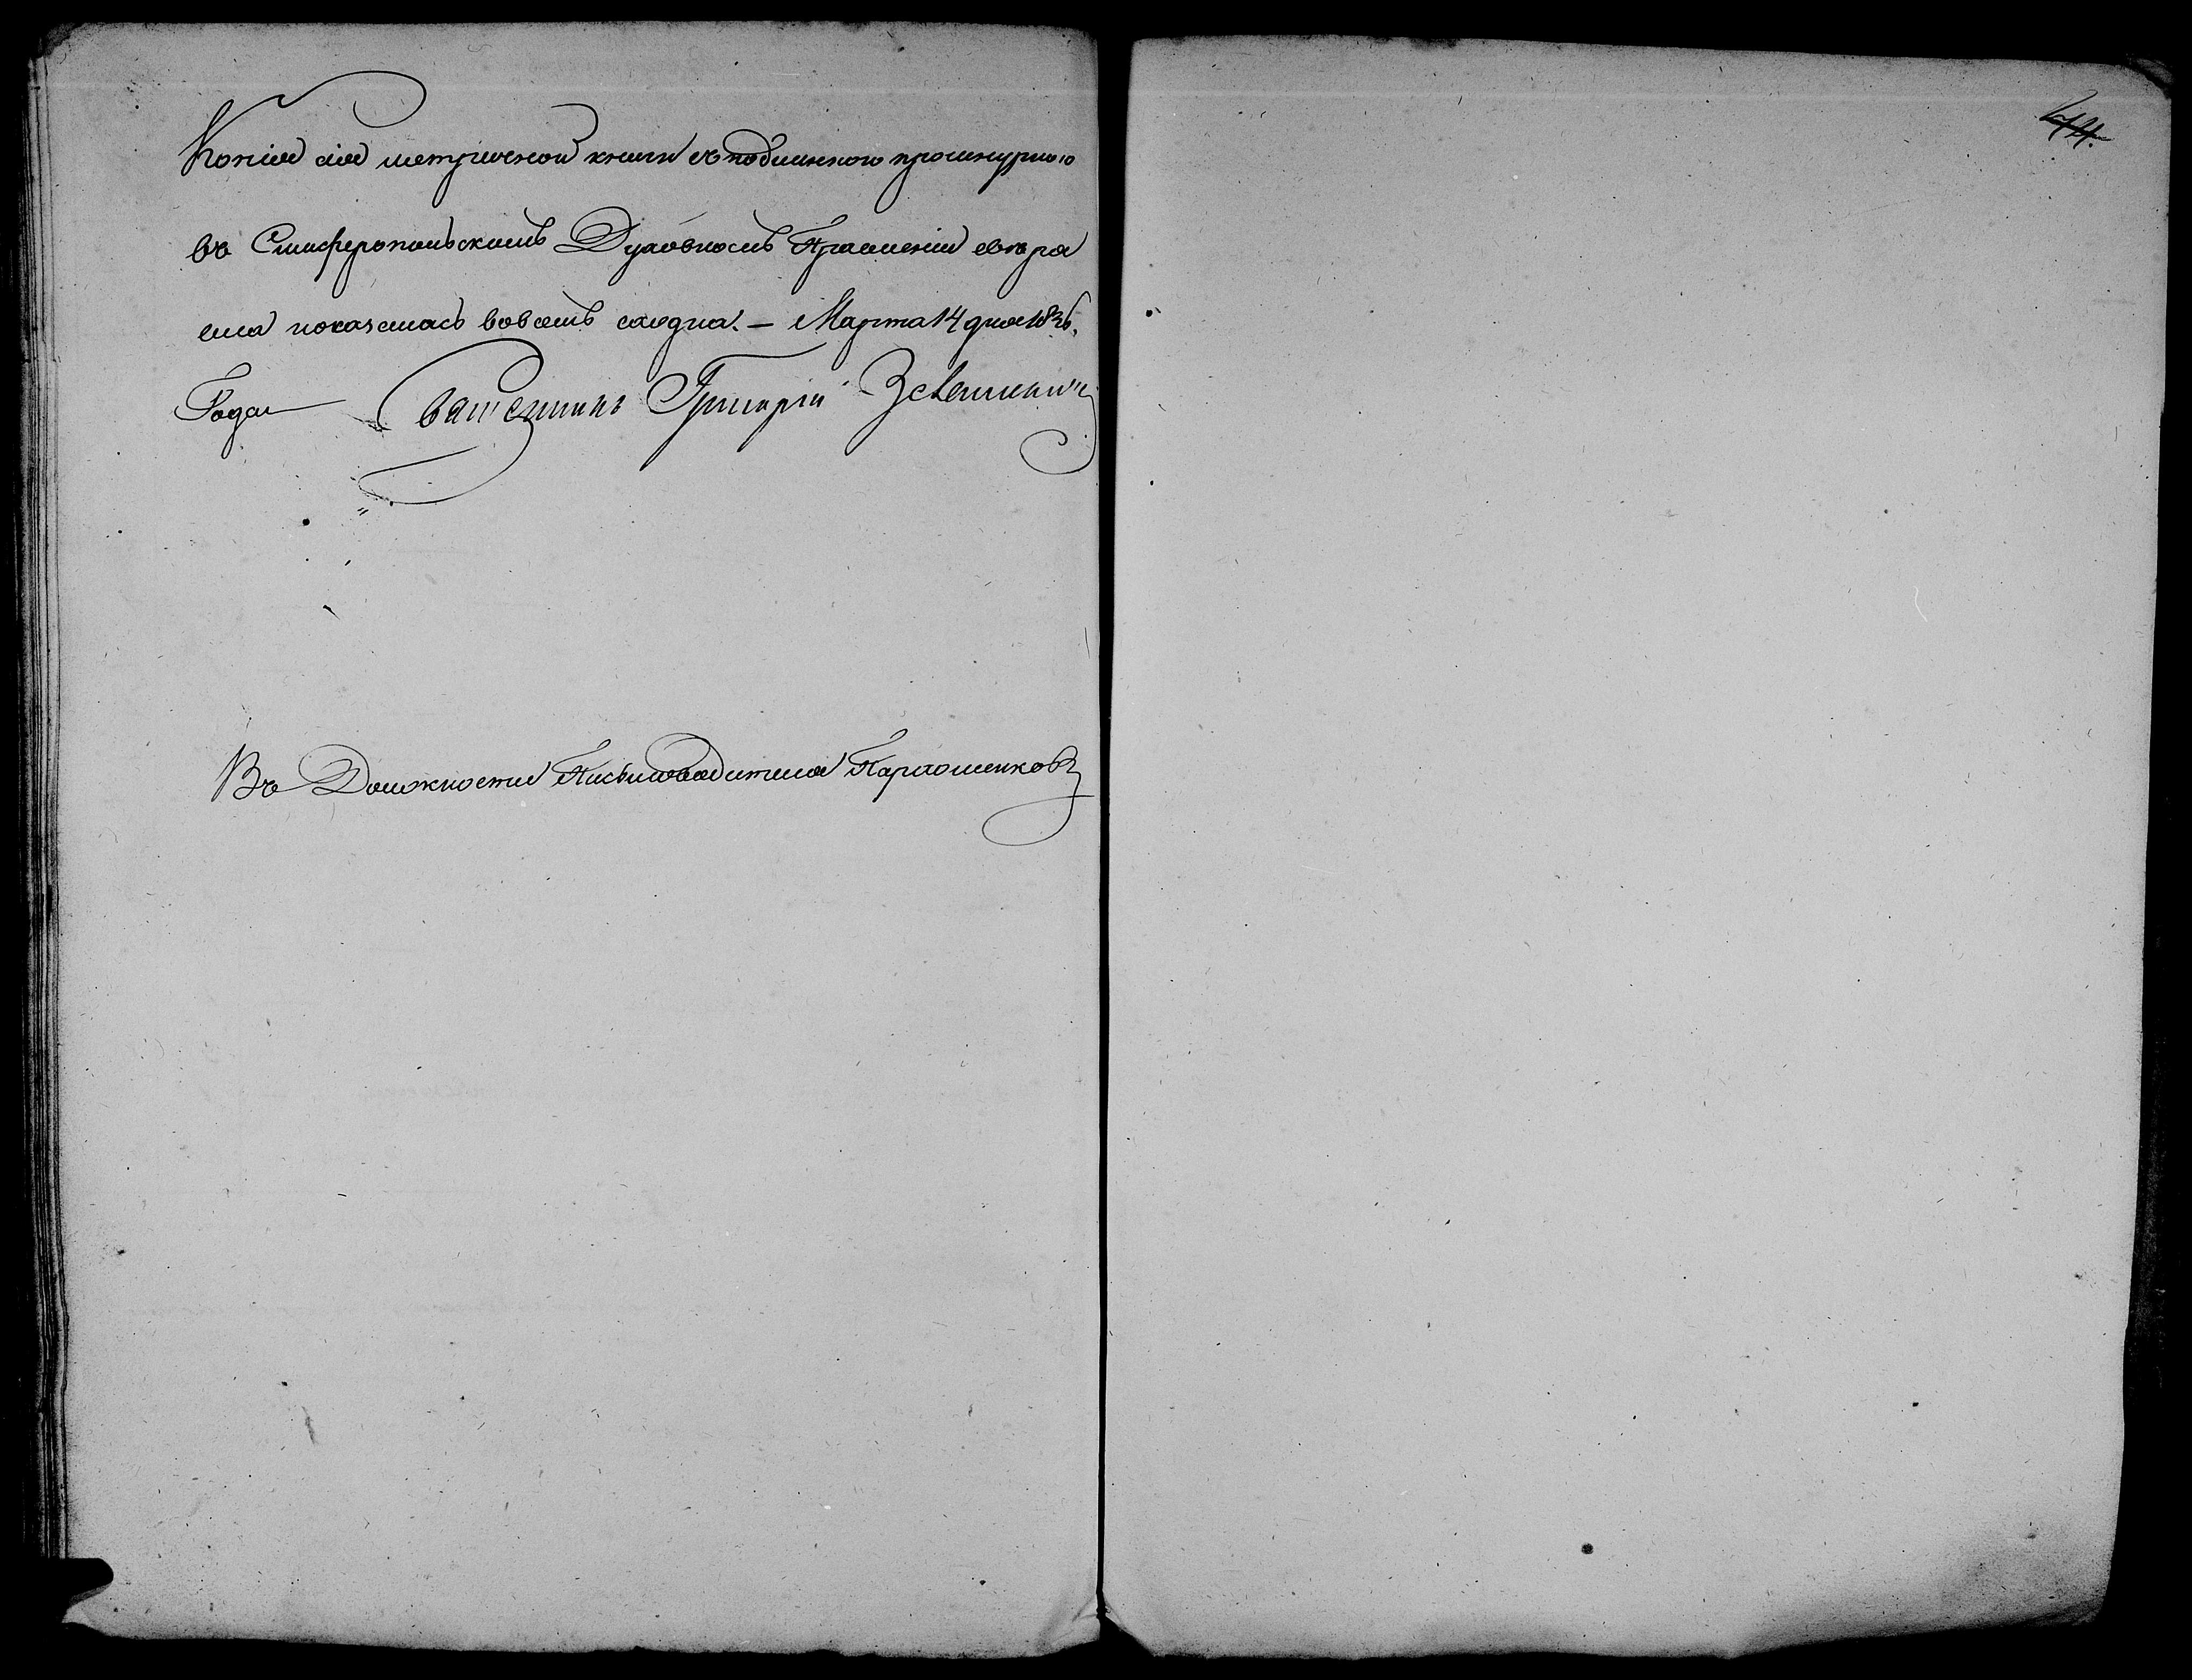 Копія сія метрической книги съ подлинною прошнурною
въ Симферопольскомъ Духовномъ Правленіи свѣря
ема показалась вовсемъ сходна. — Марта 14 дня 1836.
Года Священникъ Григорій
Въ Должности Письмоводителя Пархоменковъ
44.